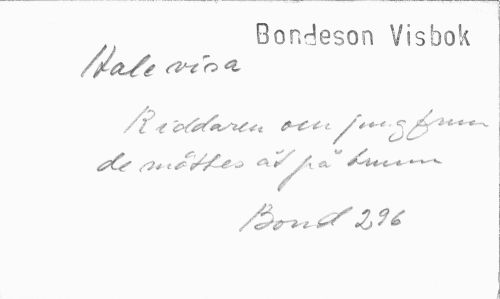 Bondeson Visbok
Hale visa
Riddaren och jungfrun
de möttes åt på
Bond 296